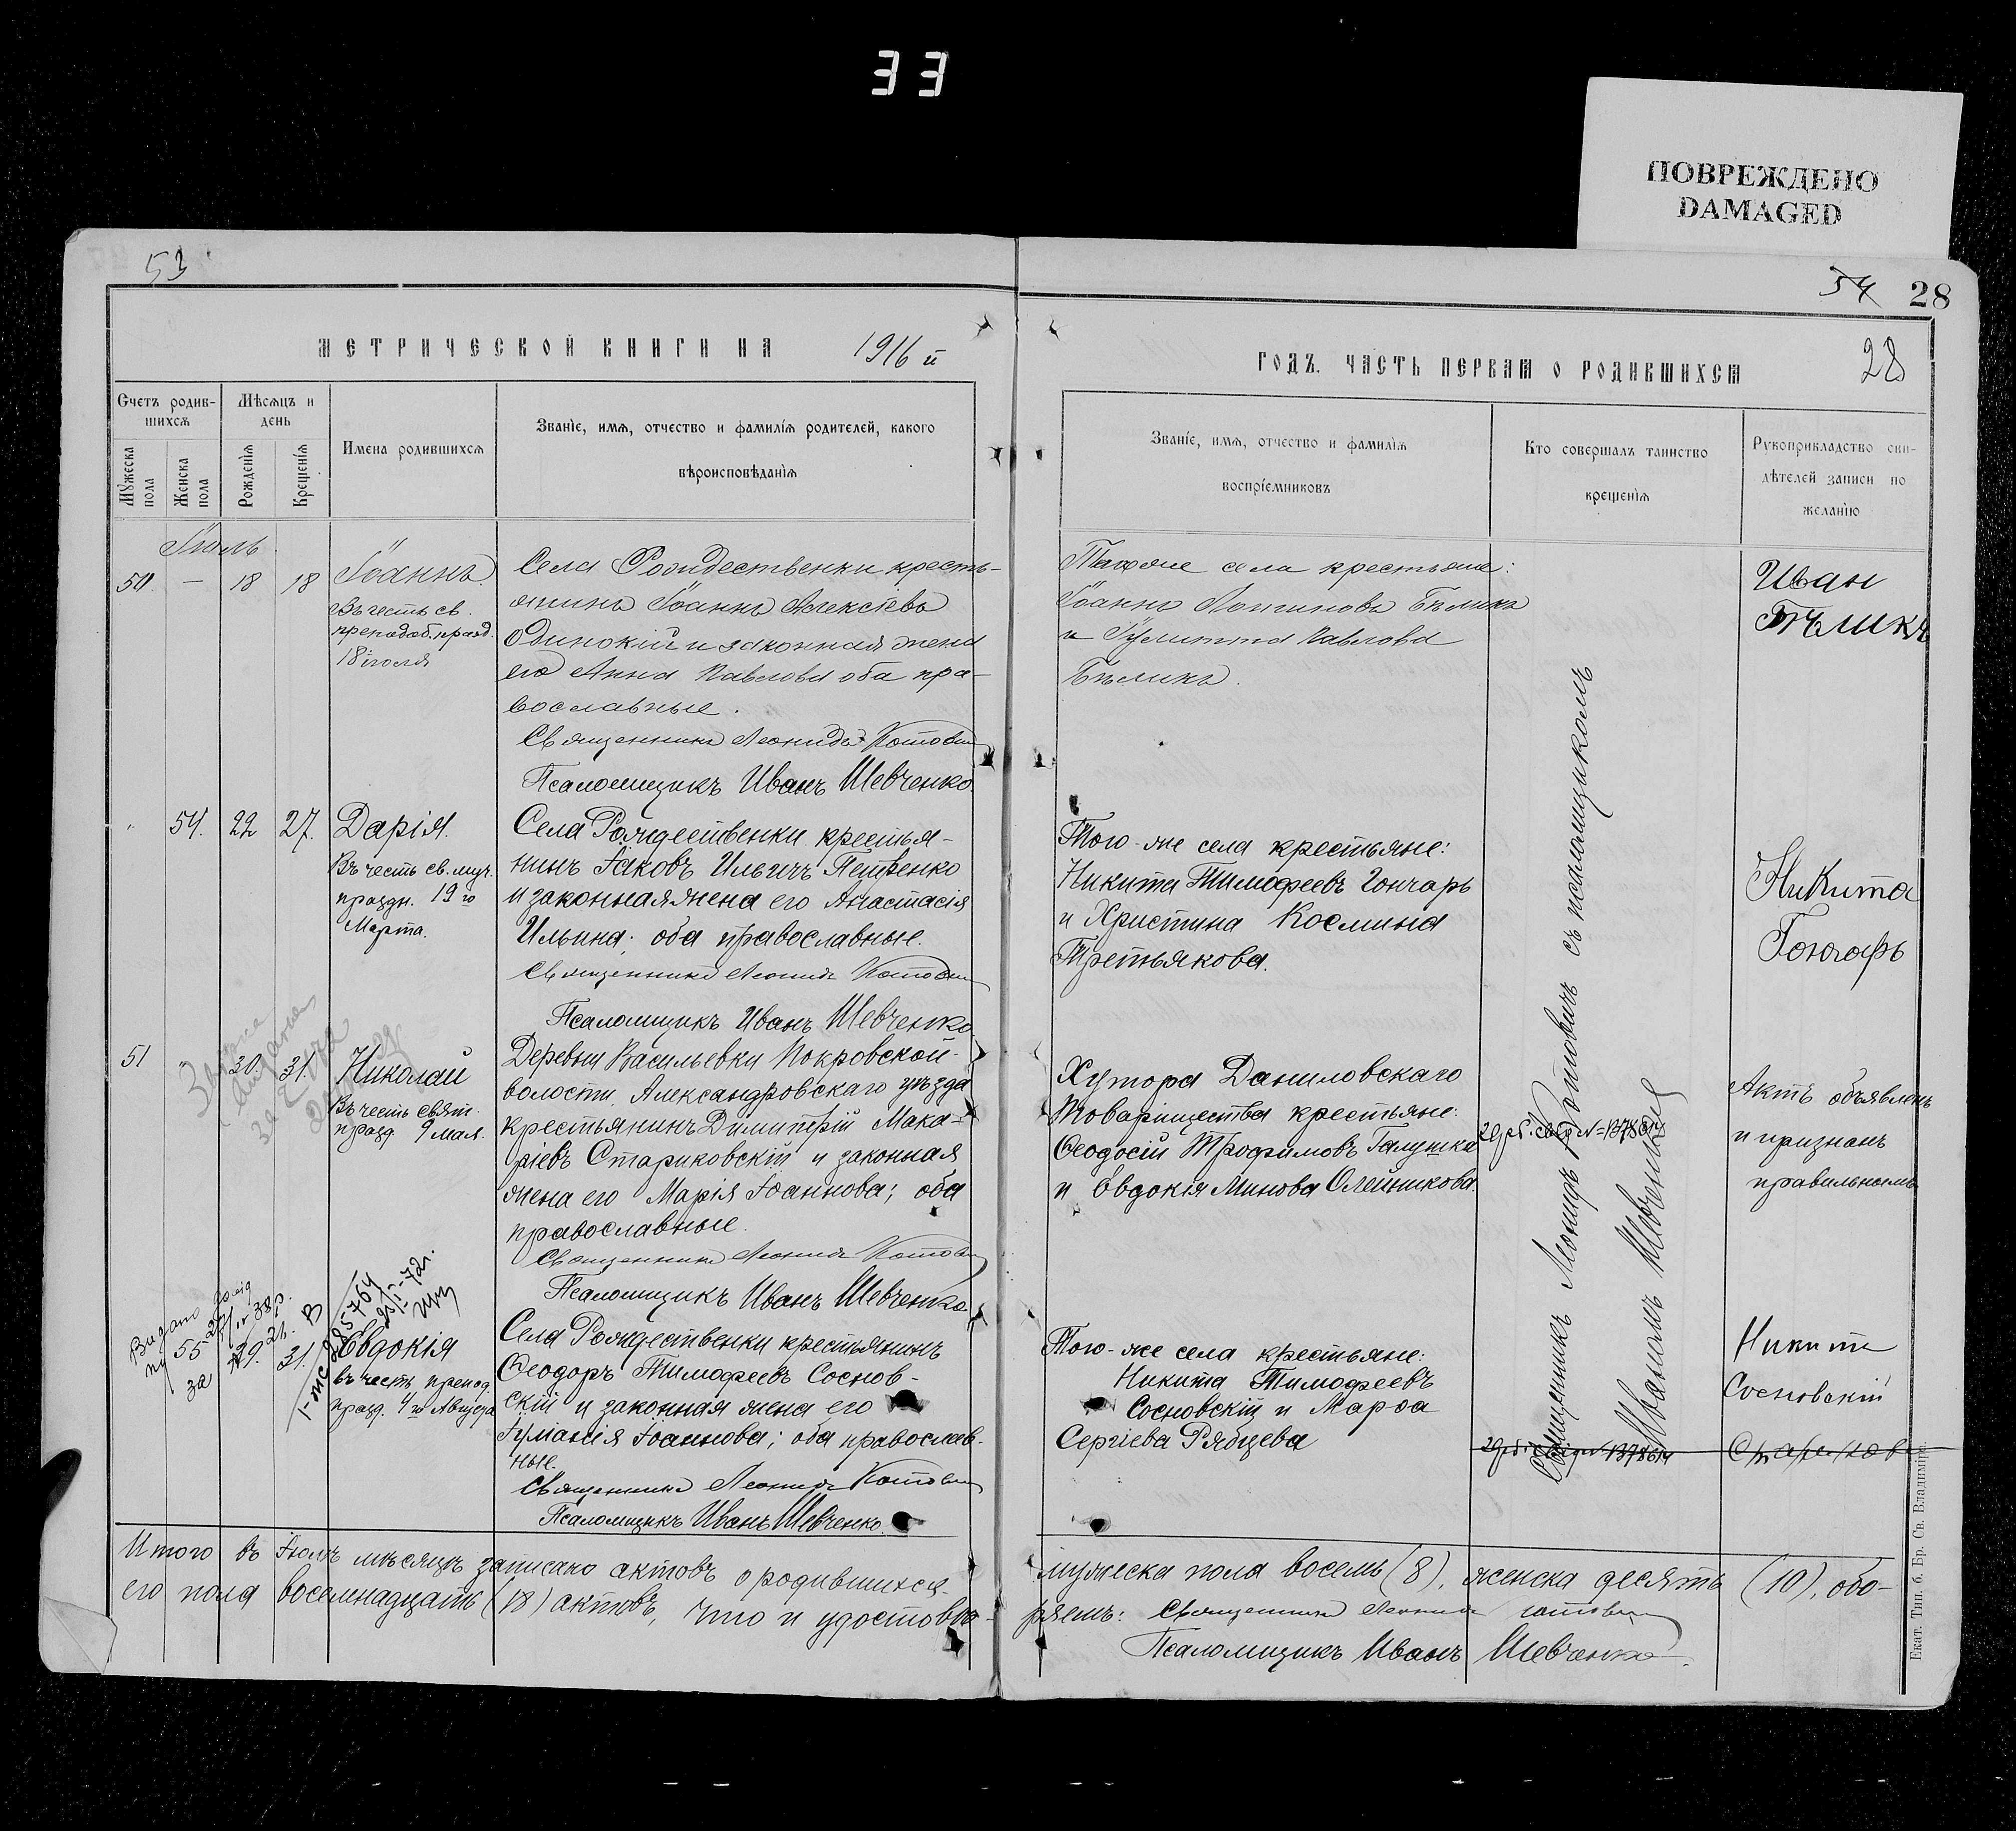 33
ПОВРЕЖДЕНО
DAMAGED
53
МЕТРИЧЕСКОЙ КНИГИ НА 1916 й
Счетъ родив-
шихся
Мѣсяцъ и
день
Имена родившихся
Званіе, имя, отчество и фамилія родителей, какого
вѣроисповѣданія
Мужеска
пола
Женска
пола
Рожденія
Крещенія
Іюль
50. — 18 18
Іоаннъ
Въ честь св.
преподоб. празд.
18 іюля
Села Рождественки кресть-
янинъ Іоаннъ Алексіевъ
Одинокій и законная жена
его Анна Павлова оба пра-
вославные.
Священникъ Леонидъ Котович
Псаломщикъ Иванъ Шевченко.
" 54. 22 27.
Дарія.
Въ честь св. муч.
праздн. 19го
Марта.
Села Рождественки крестья-
нинъ Іаковъ Ильичъ Петренко
и законная жена его Анастасія
Ильина; оба православные.
Священникъ Леонидъ Котович
Псаломщикъ Иванъ Шевченко
51 " 30. 31.
Николай
Въ честь свят.
празд. 9 мая.
Деревни Васильевки Покровской
волости, Александровскаго уѣзда
крестьянинъ Димитрій Мака-
ріевъ Стариковскій и законная
жена его Марія Іоаннова; оба
православные.
Священникъ Леонидъ Котович
Псаломщикъ Иванъ Шевченко
55 29. 31.
Евдокія
въ честь препод.
празд. 4го Августа
Села Рождественки крестьянинъ
Ѳеодоръ Тимофеевъ Соснов-
скій и законная жена его
Іуліанія Іоаннова; оба православ-
ные.
Священникъ Леонидъ Котович
Псаломщикъ Иванъ Шевченко.
Итого въ Іюлѣ мѣсяцѣ записано актовъ о родившихся
его пола восемнадцать (18) актовъ, что и удостовѣ-
54 28
28
ГОДЪ. ЧАСТЬ ПЕРВАЯ О РОДИВШИХСЯ
Званіе, имя, отчество и фамилія
воспріемниковъ
Кто совершалъ таинство
крещенія
Рукоприкладство сви-
дѣтелей записи по
желанію
села крестьяне:
Іоаннъ Логиновъ Бѣликъ
и Іулитта Павлова
Бѣликъ.
Иван
Бѣликъ
Того-же села крестьяне:
Никита Тимофеевъ Гончаръ
и Христина Космина
Третьякова.
Никита
Гончаръ
Хутора Даниловскаго
Товарищества крестьяне:
Ѳеодосій Трофимовъ Галушка
и Евдокія Минова Олейникова.
Актъ объявленъ
и признанъ
правильнымъ
Того-же села крестьяне:
Никита Тимофеевъ
Сосновскій и Марѳа
Сергіева Рябцева
Никита
Сосновскій
Священникъ Леонидъ Котовичъ съ псаломщикомъ
Иваномъ Шевченко
мужеска пола восемь (8), женска десять (10), обо-
ряемъ: Священникъ Леонидъ Котович
Псаломщикъ Иванъ Шевченко.
Екат. Тип. б. Бр. Св. Владимира